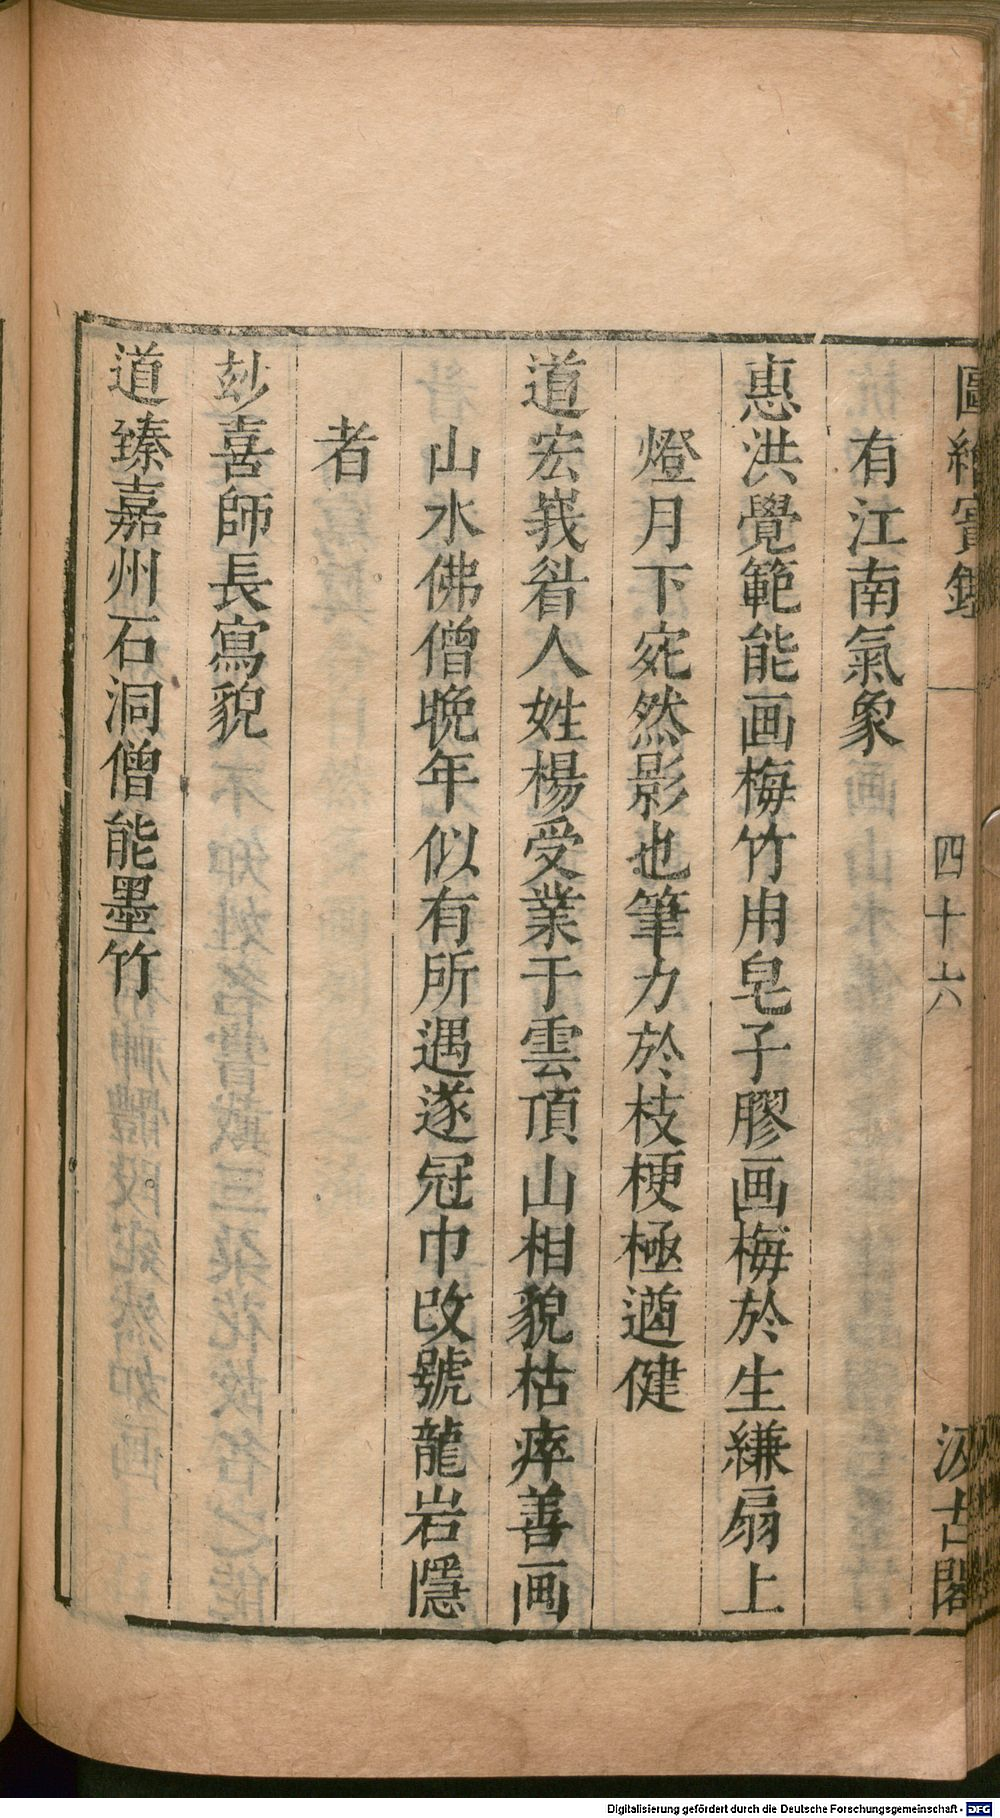 圖繪寳鑑
四十六
汲古閣
有江南氣象
惠洪覺範能画梅竹用皂子膠画梅於生縑扇上
燈月下宛然影也筆力於枝梗極遒健
道宏峩眉人姓楊受業于雲頂山相貌枯瘁善画
山水佛僧晚年似有所遇遂冠巾改號龍岩隱
者
玅喜師長寫貌
道臻嘉州石洞僧能墨竹
Digitalisierung gefördert durch die Deutsche Forschungsgemeinschaft - DFG